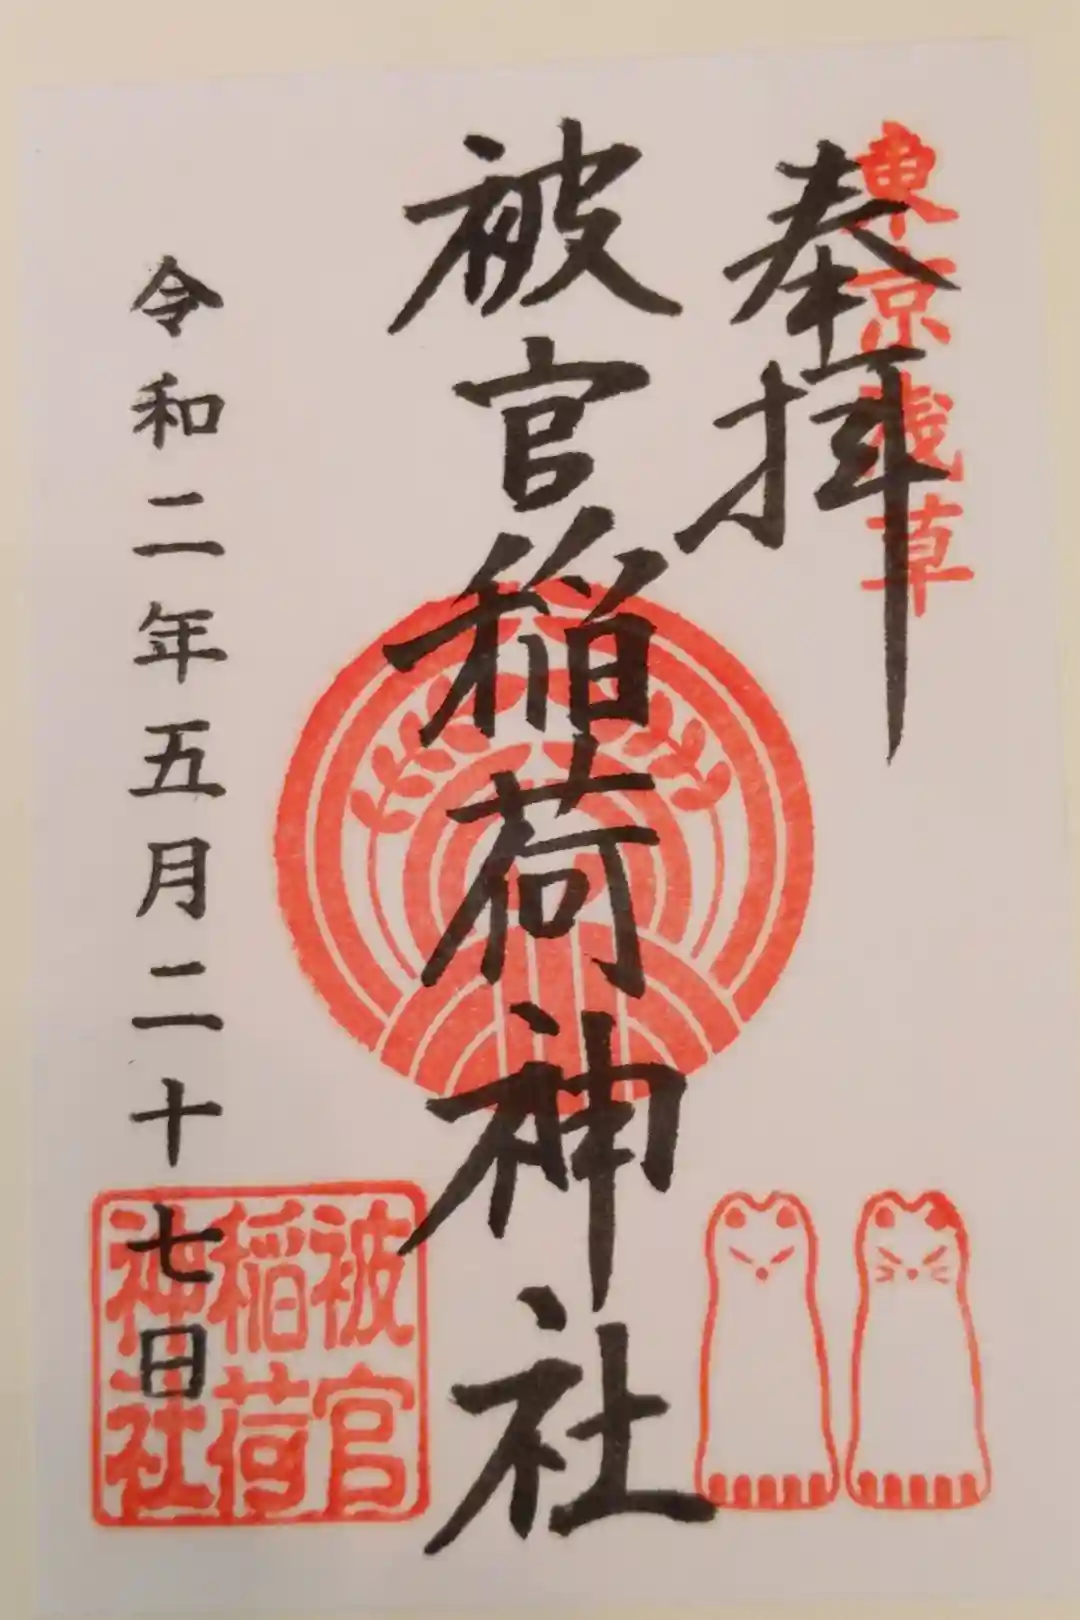 東京浅草
奉拝
被官稲荷神社
令和二年五月二十七日
被官
稲荷
神社